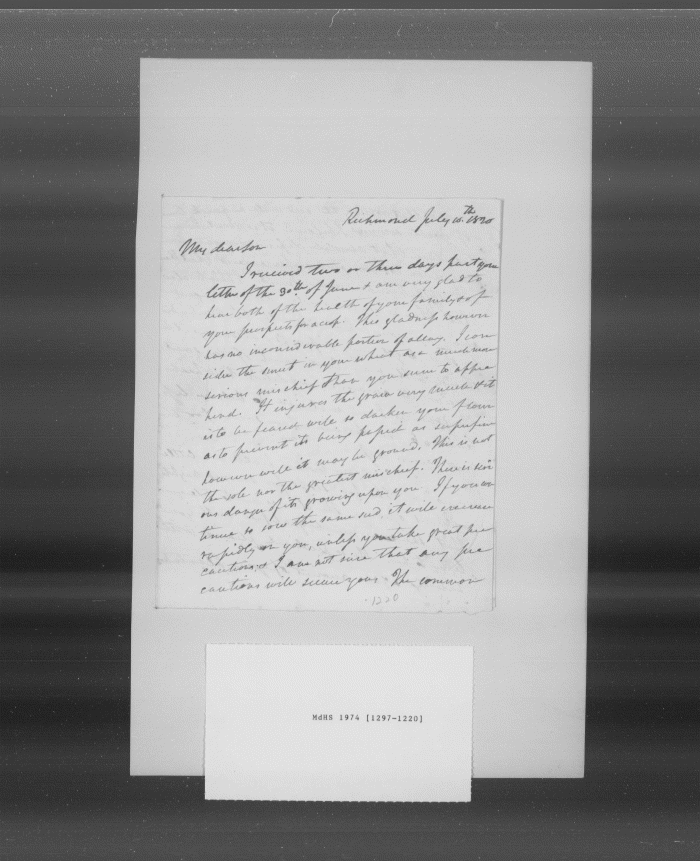 Richmond July 10th 1820
My dear Son
I received two or three days past your
letter of the 30th of June & am very glad to
hear both of the health of your family & of
your prospects for a crop. This gladness however
has no inconsiderable portion of alloy. I con
sider the smut in your wheat as a much more
serious mischief than you seem to appre
hend. It injures the grain very much & it
is to be feared will so darken your flour
as to prevent its being passed as superfine
however well it may be ground. This is not
the sole nor the greatest mischief. There is seri
ous danger of its growing upon you. If you con
tinue to sow the same seed it will increase
rapidly on you, unless you take great pre
cautions, & I am not sure that any pre
cautions will secure you. The common
1220
MdHS 1974 [1297-1220]